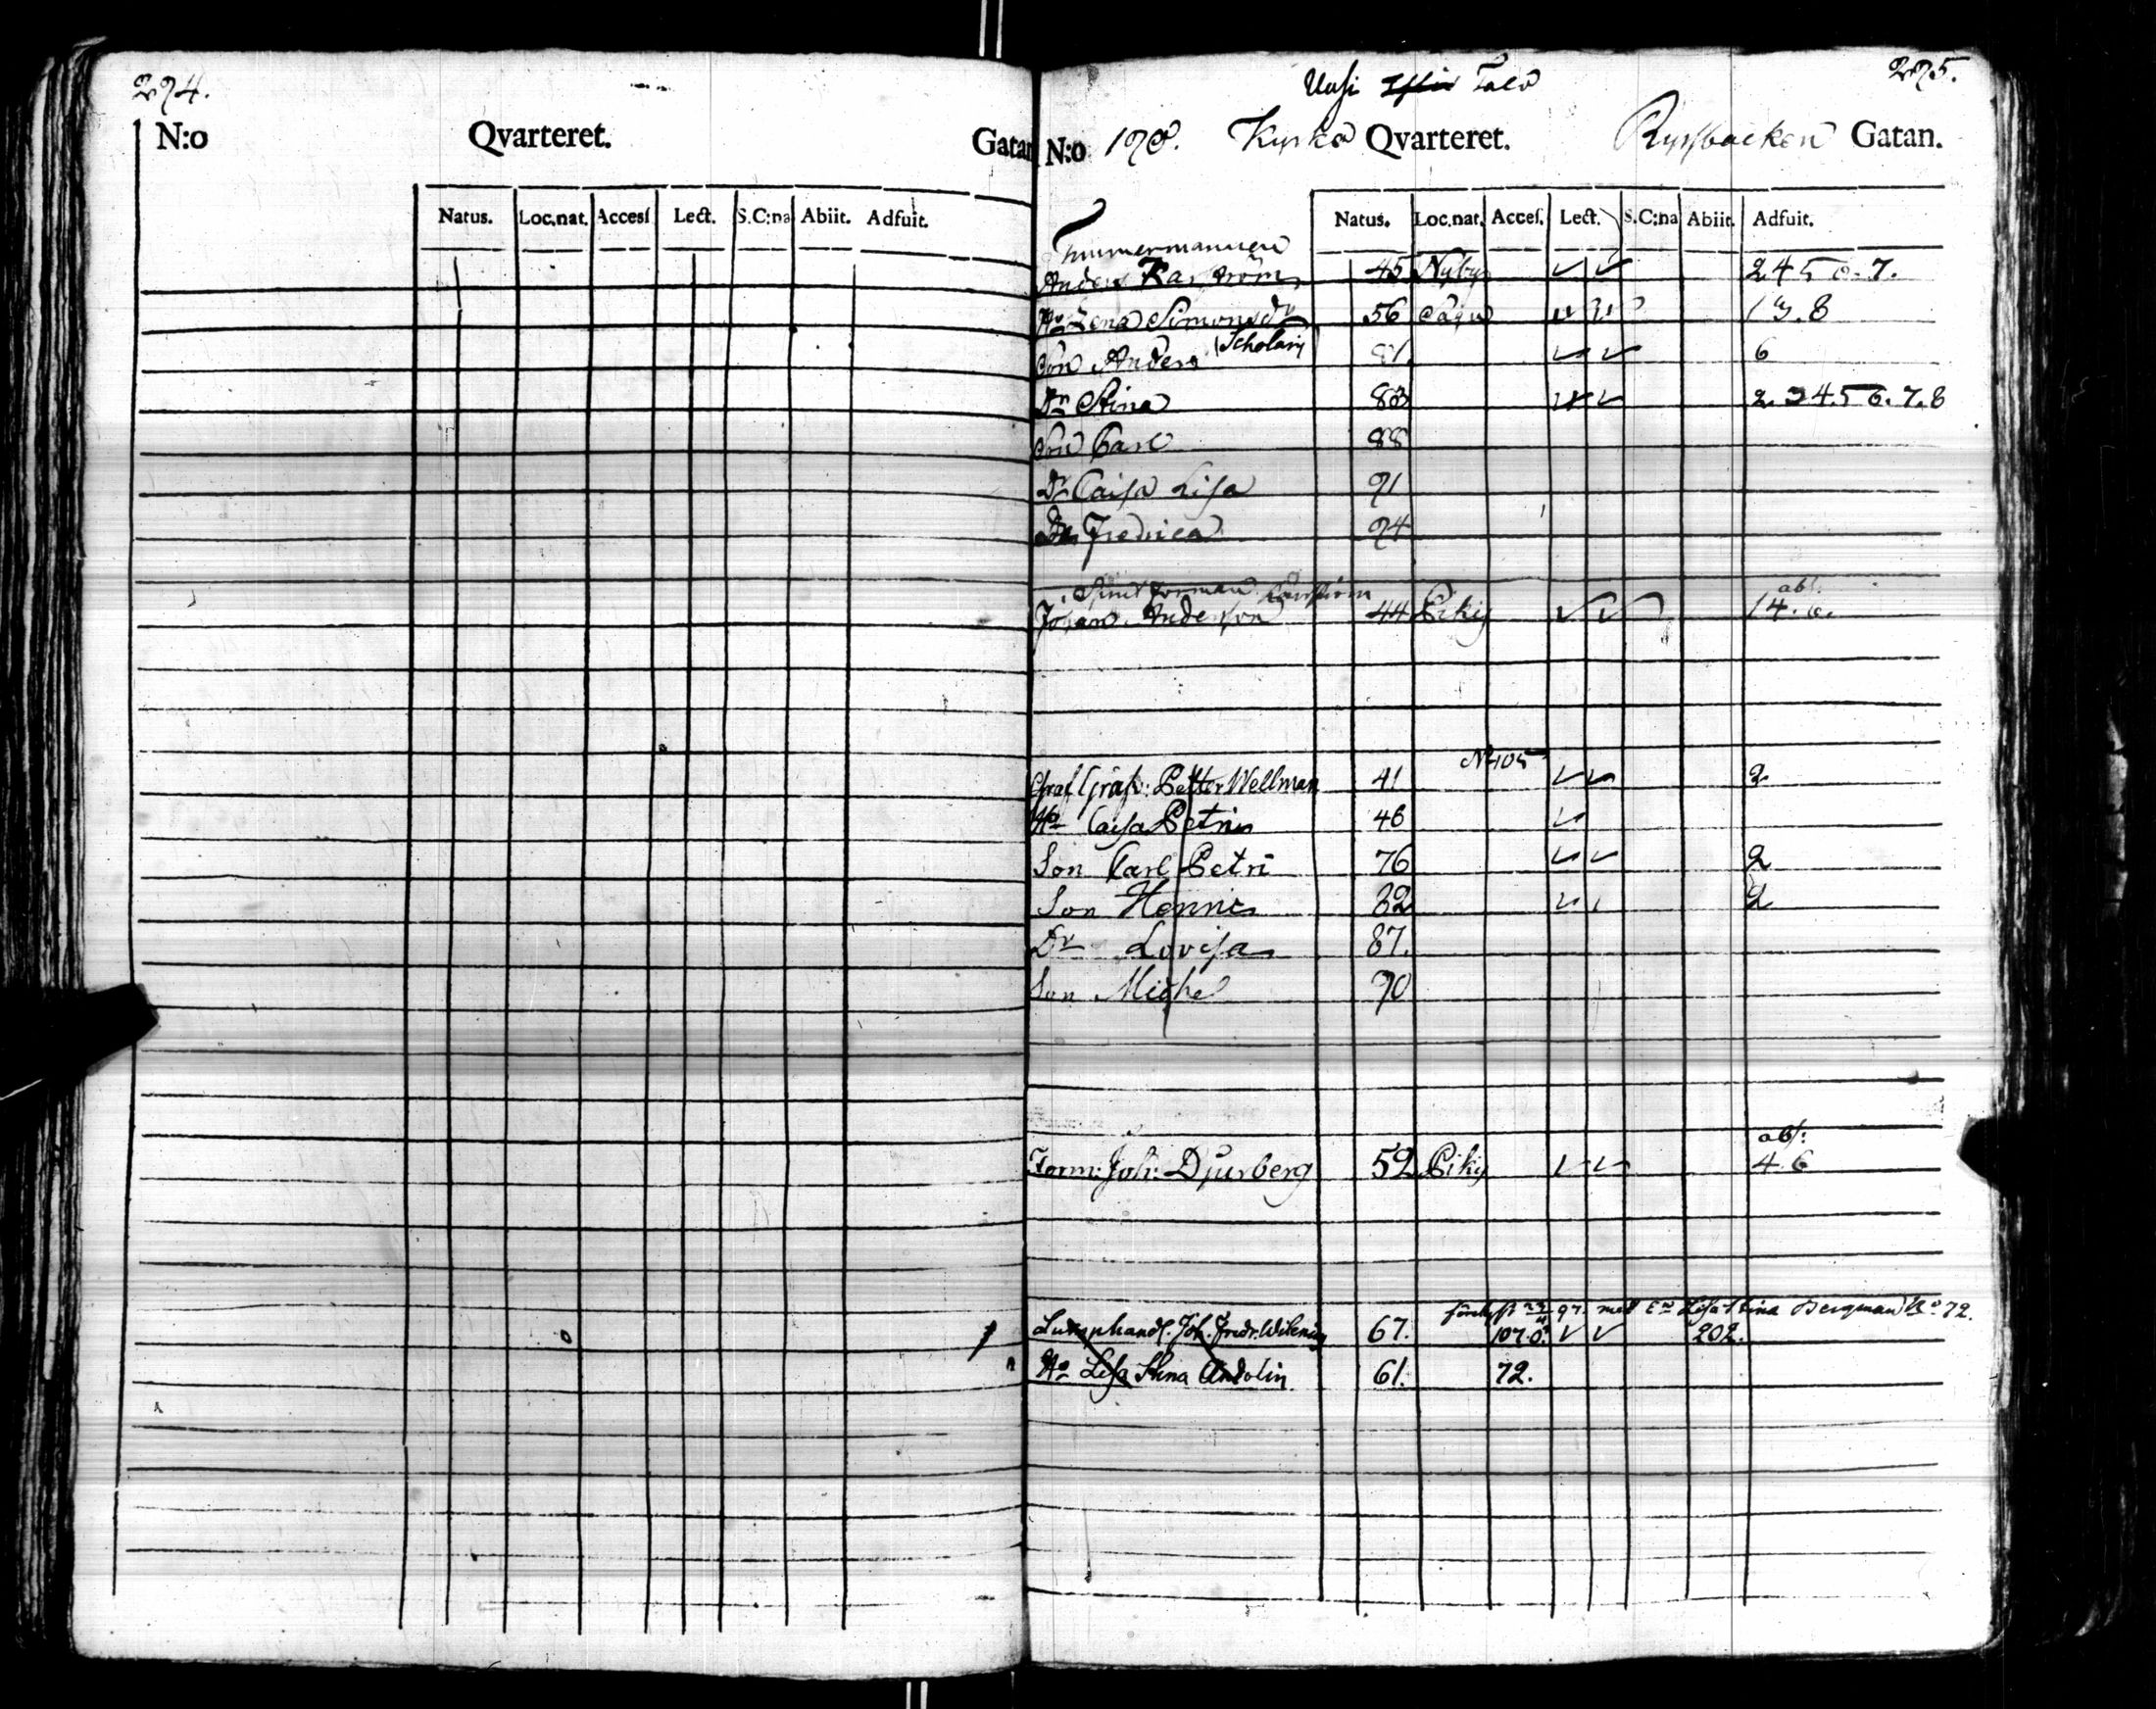 274.
N:o Qvarteret. Gatan
Natus. Loc.nat. Accesſ Lect. S.C:na Abiit. Adfuit.
275.
Uusi Talo
N:o 198. Kyrko Qvarteret. Ryssbacken Gatan.
Natus. Loc.nat. Acceſ. Lect. S.C:na Abiit. Adfuit.
Timmermannen
Anders Karström 45 Nyby 2 4 5 6. 7.
Hu Lena Simonsdr 56 Sagu
Son Anders Scholaris 81. 6
Dr Stina 83 2. 3 4. 5 6. 7. 8
Son Carl 88
Dr Caisa Lisa 91
Dr Fredrica 94
abs.
Johan Andersson 44 Piky 1 4. 6.
No 105
Petter Wellman 41 2
Hu Caisa Petri 46
Son Carl Petri 76 2
Son Henric 82 2
Dr Lovisa 87.
Son Michel 90
abs:
Form: Joh: Djurberg 52 Piky 4 6
med Lisa Stina Bergman No 72.
Lumphandl. Joh. Fredr. Wilenius 67. 107. 202.
Hu Lisa Stina Andolin 61. 72.